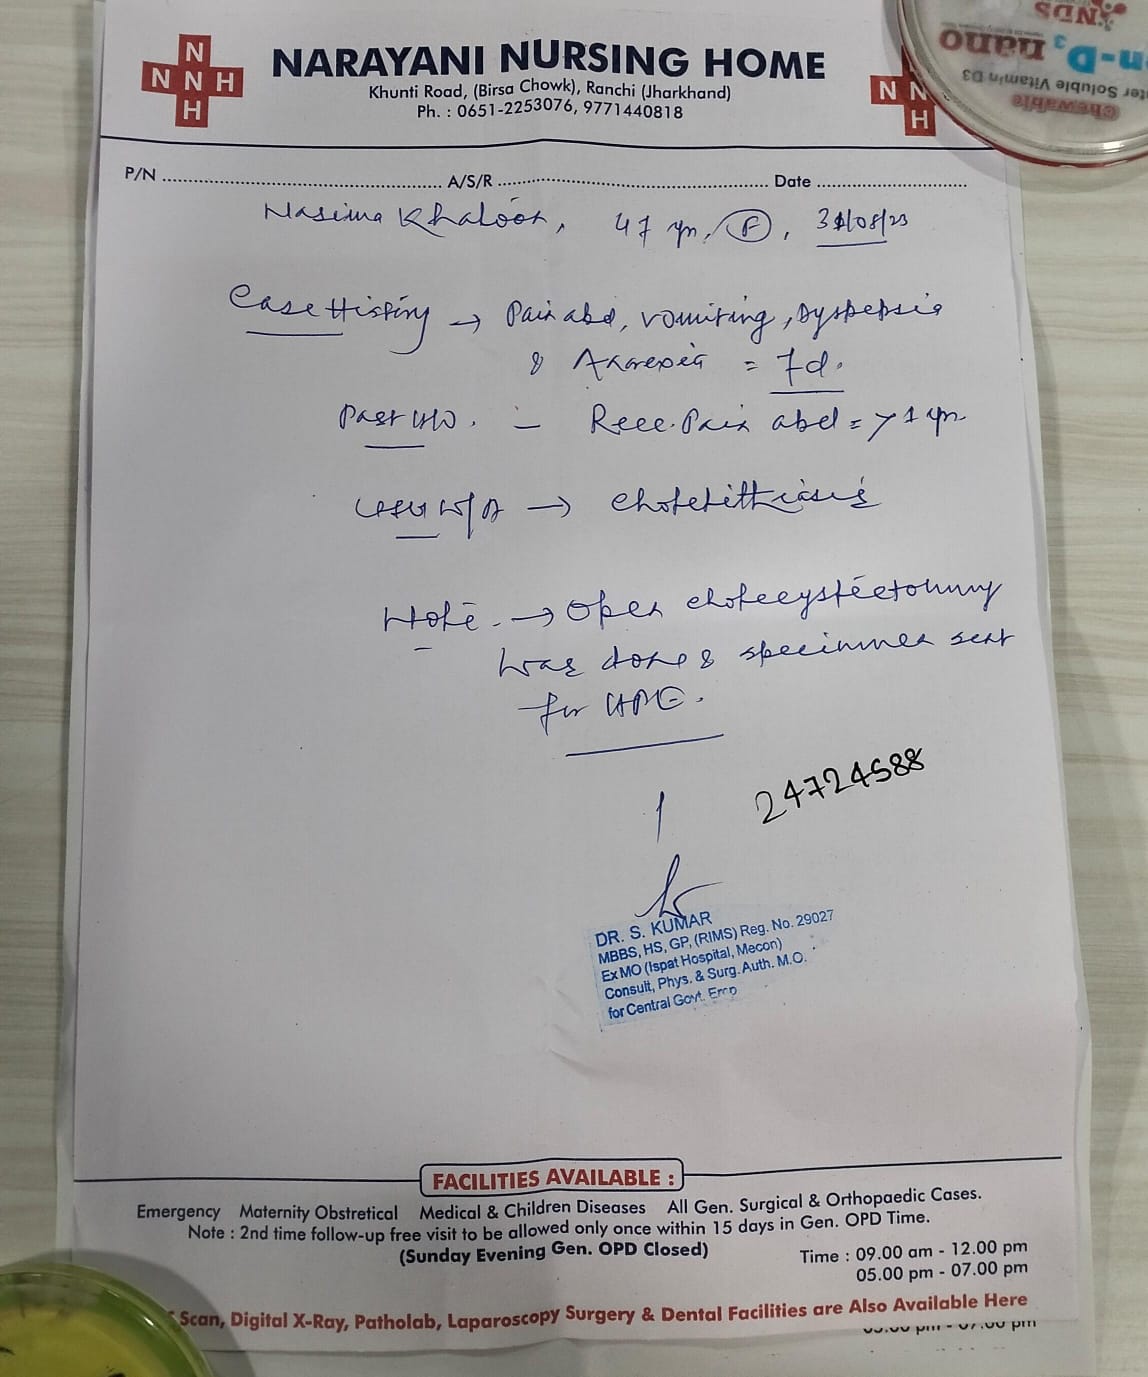 N
N N H
H
NARAYANI NURSING HOME
Khunti Road, (Birsa Chowk), Ranchi (Jharkhand)
Ph. : 0651-2253076, 9771440818
N N
H
NDS
n-D3 nano
ter Soluble Vitamin D3
Chewable
P/N ........ A/S/R ........ Date ........
Nasima Khatoon, 47 yr, F, /08/23
Case History → Pain abd, vomiting, Dyspepsia
& Anorexia = 7d.
Past H/O. - Recc. Pain abd = > 1 yr.
→ Cholelithiasis
Note. → Open cholecystectomy
was done & specimen sent
for HPE.
24724588
DR. S. KUMAR
MBBS, HS, GP, (RIMS) Reg. No. 29027
Ex MO (Ispat Hospital, Mecon)
Consult, Phys. & Surg. Auth. M.O.
for Central Govt. Emp
FACILITIES AVAILABLE :
Emergency Maternity Obstretical Medical & Children Diseases All Gen. Surgical & Orthopaedic Cases.
Note : 2nd time follow-up free visit to be allowed only once within 15 days in Gen. OPD Time.
(Sunday Evening Gen. OPD Closed)
Time : 09.00 am - 12.00 pm
05.00 pm - 07.00 pm
Scan, Digital X-Ray, Patholab, Laparoscopy Surgery & Dental Facilities are Also Available Here
05.00 pm - 07.00 pm